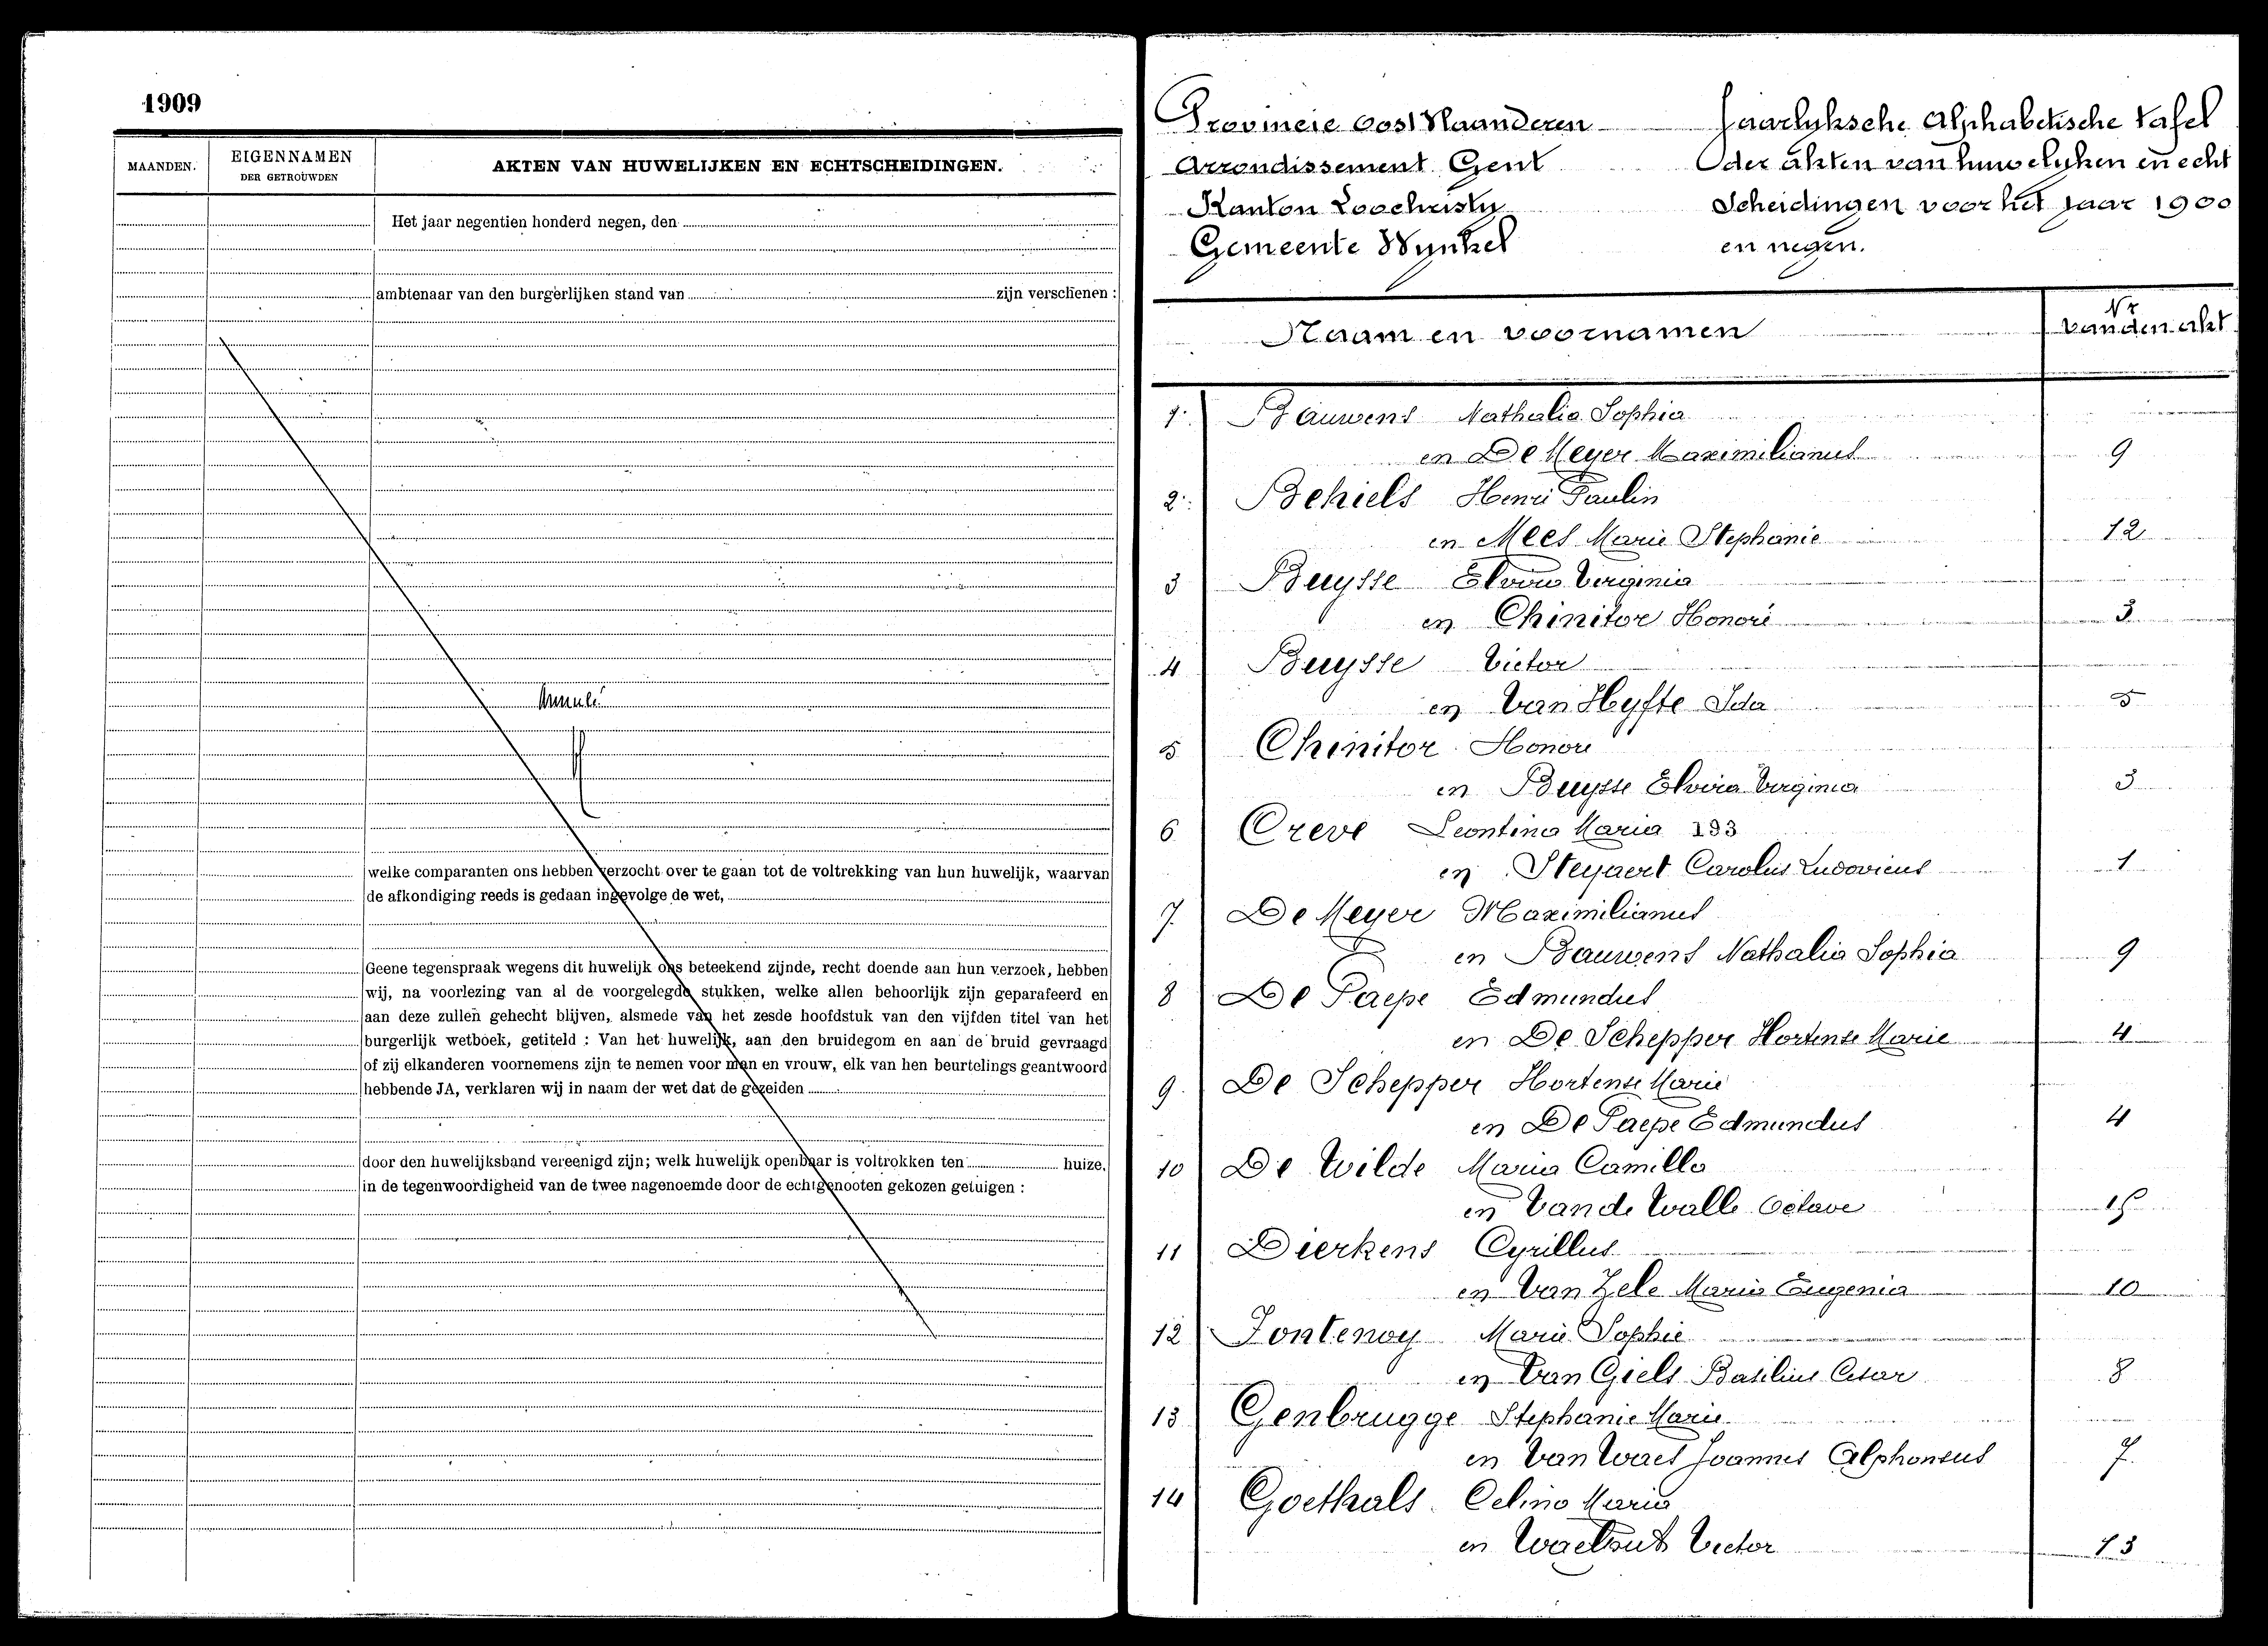 1909
MAANDEN.
EIGENNAMEN
DER GETROUWDEN
AKTEN VAN HUWELIJKEN EN ECHTSCHEIDINGEN.
Het jaar negentien honderd negen, den
ambtenaar van den burgerlijken stand van zijn verschenen :
Annulé
welke comparanten ons hebben verzocht over te gaan tot de voltrekking van hun huwelijk, waarvan
de afkondiging reeds is gedaan ingevolge de wet,
Geene tegenspraak wegens dit huwelijk ons beteekend zijnde, recht doende aan hun verzoek, hebben
wij, na voorlezing van al de voorgelegde stukken, welke allen behoorlijk zijn geparafeerd en
aan deze zullen gehecht blijven, alsmede van het zesde hoofdstuk van den vijfden titel van het
burgerlijk wetboek, getiteld : Van het huwelijk, aan den bruidegom en aan de bruid gevraagd
of zij elkanderen voornemens zijn te nemen voor man en vrouw, elk van hen beurtelings geantwoord
hebbende JA, verklaren wij in naam der wet dat de gezeiden
door den huwelijksband vereenigd zijn; welk huwelijk openbaar is voltrokken ten huize.
in de tegenwoordigheid van de twee nagenoemde door de echtgenooten gekozen getuigen :
Provincie Oost Vlaanderen
Arrondissement Gent
Kanton Loochristy
Gemeente Wynkel
Jaarlyksche Alphabetische tafel
der akten van huwelyken en echt
Scheidingen voor het jaar 1900
en negen.
Naam en voornamen
Nr
van den akt
1. Bauwens Nathalia Sophia
en De Meyer Maximilianus 9
2. Behiels Henri Paulin
en Mees Marie Stephanie 12
3 Buysse Elvira Virginia
en Chinitor Honoré 3
4 Buysse Victor
en Van Hyfte Ida 5
5 Chinitor Honoré
en Buysse Elvira Virginia 3
6 Creve Leontina Maria 193
en Steyaert Carolus Ludovicus 1
7. De Meyer Maximilianus
en Bauwens Nathalia Sophia 9
8 De Paepe Edmundus
en De Schepper Hortense Marie 4
9. De Schepper Hortense Marie
en De Paepe Edmundus 4
10 De Wilde Maria Camilla
en Van de Walle Octave
11 Dierkens Cyrillus
en Van Zele Maria Eugenia 10
12 Fontenoy Marie Sophie
en Van Giels Basilius Cesar 8
13 Genbrugge Stephanie Marie
en Van Waes Joannes Alphonsus 7.
14 Goethals Celina Maria
en Victor 13